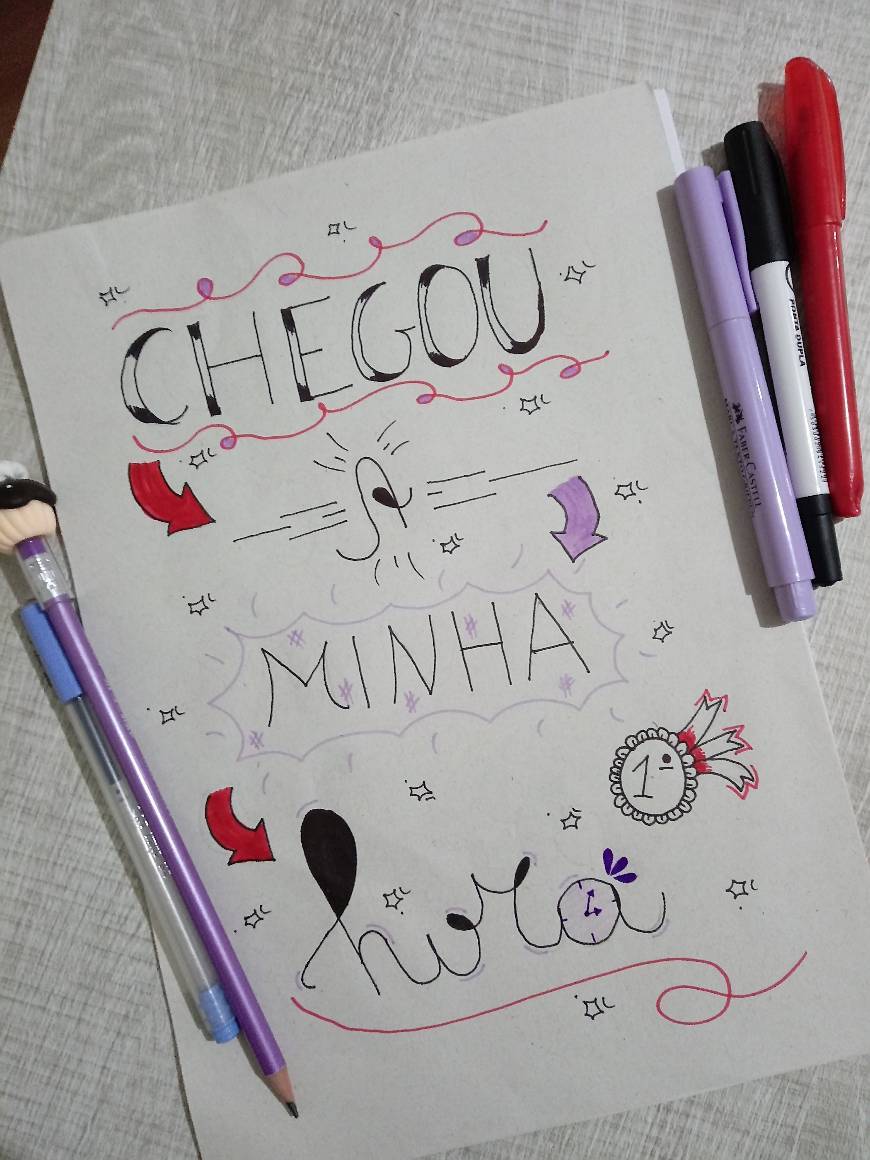 CHEGOU
A
MINHA
1º
hora
PONTA DUPLA
FABER-CASTELL